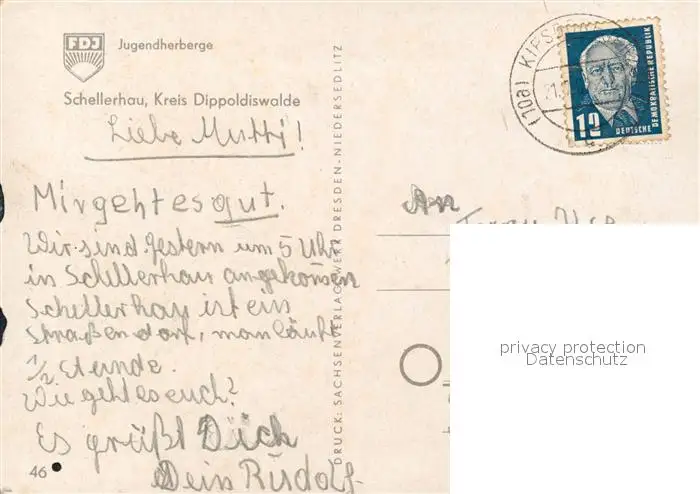 FDJ Jugendherberge
Schellerhau, Kreis Dippoldiswalde
Liebe Mutti!
Mir geht es gut.
Wir sind gestern um 5 Uhr
in Schellerhau angekommen
Schellerhau ist ein
straßendorf, man läuft
1/2 Stunde.
Wie geht es euch?
Es grüßt Dich
Dein Rudolf
46
DRUCK: SACHSENVERLAG WERK DRESDEN-NIEDERSEDLITZ
(10a) KIPSDORF
21.
12
DEUTSCHE
DEMOKRATISCHE REPUBLIK
An
privacy protection
Datenschutz